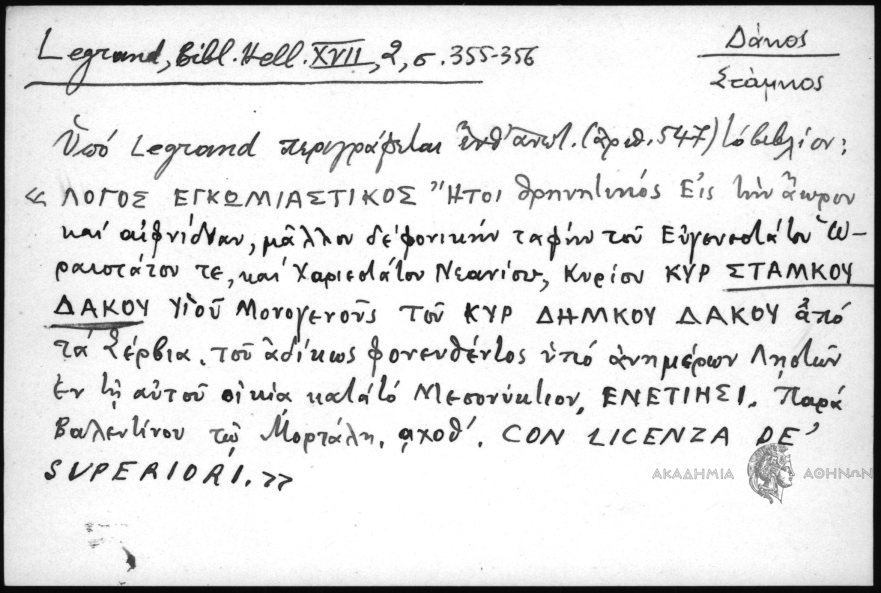 Legrand, Bibl. Hell. XVII, 2, σ. 355-356
Δάκος
Στάμκος
Ὑπό Legrand περιγράφεται ἐνθ' ἀνωτ. (ἀριθ. 547) τό βιβλίον:
« ΛΟΓΟΣ ΕΓΚΩΜΙΑΣΤΙΚΟΣ Ἤτοι θρηνητικός Εἰς τὴν ἄωρον
καί αἰφνίδιαν, μᾶλλον δέ φονικήν ταφήν τοῦ Εὐγενεστάτου Ὡ-
ραιοτάτου τε, καί Χαριεστάτου Νεανίσκου, Κυρίου ΚΥΡ ΣΤΑΜΚΟΥ
ΔΑΚΟΥ Υἱοῦ Μονογενοῦς τοῦ ΚΥΡ ΔΗΜΚΟΥ ΔΑΚΟΥ ἀπό
τά Σέρβια, τοῦ ἀδίκως φονευθέντος ὑπό ἀνημέρων Ληστῶν
ἐν τῇ αὐτοῦ οἰκίᾳ κατά τό Μεσονύκτιον, ΕΝΕΤΙΗΣΙ. Παρά
Βαλεντίνου τῷ Μορτάλῃ, αχοθ'. CON LICENZA DE'
SUPERIORI. »
ΑΚΑΔΗΜΙΑ ΑΘΗΝΩΝ